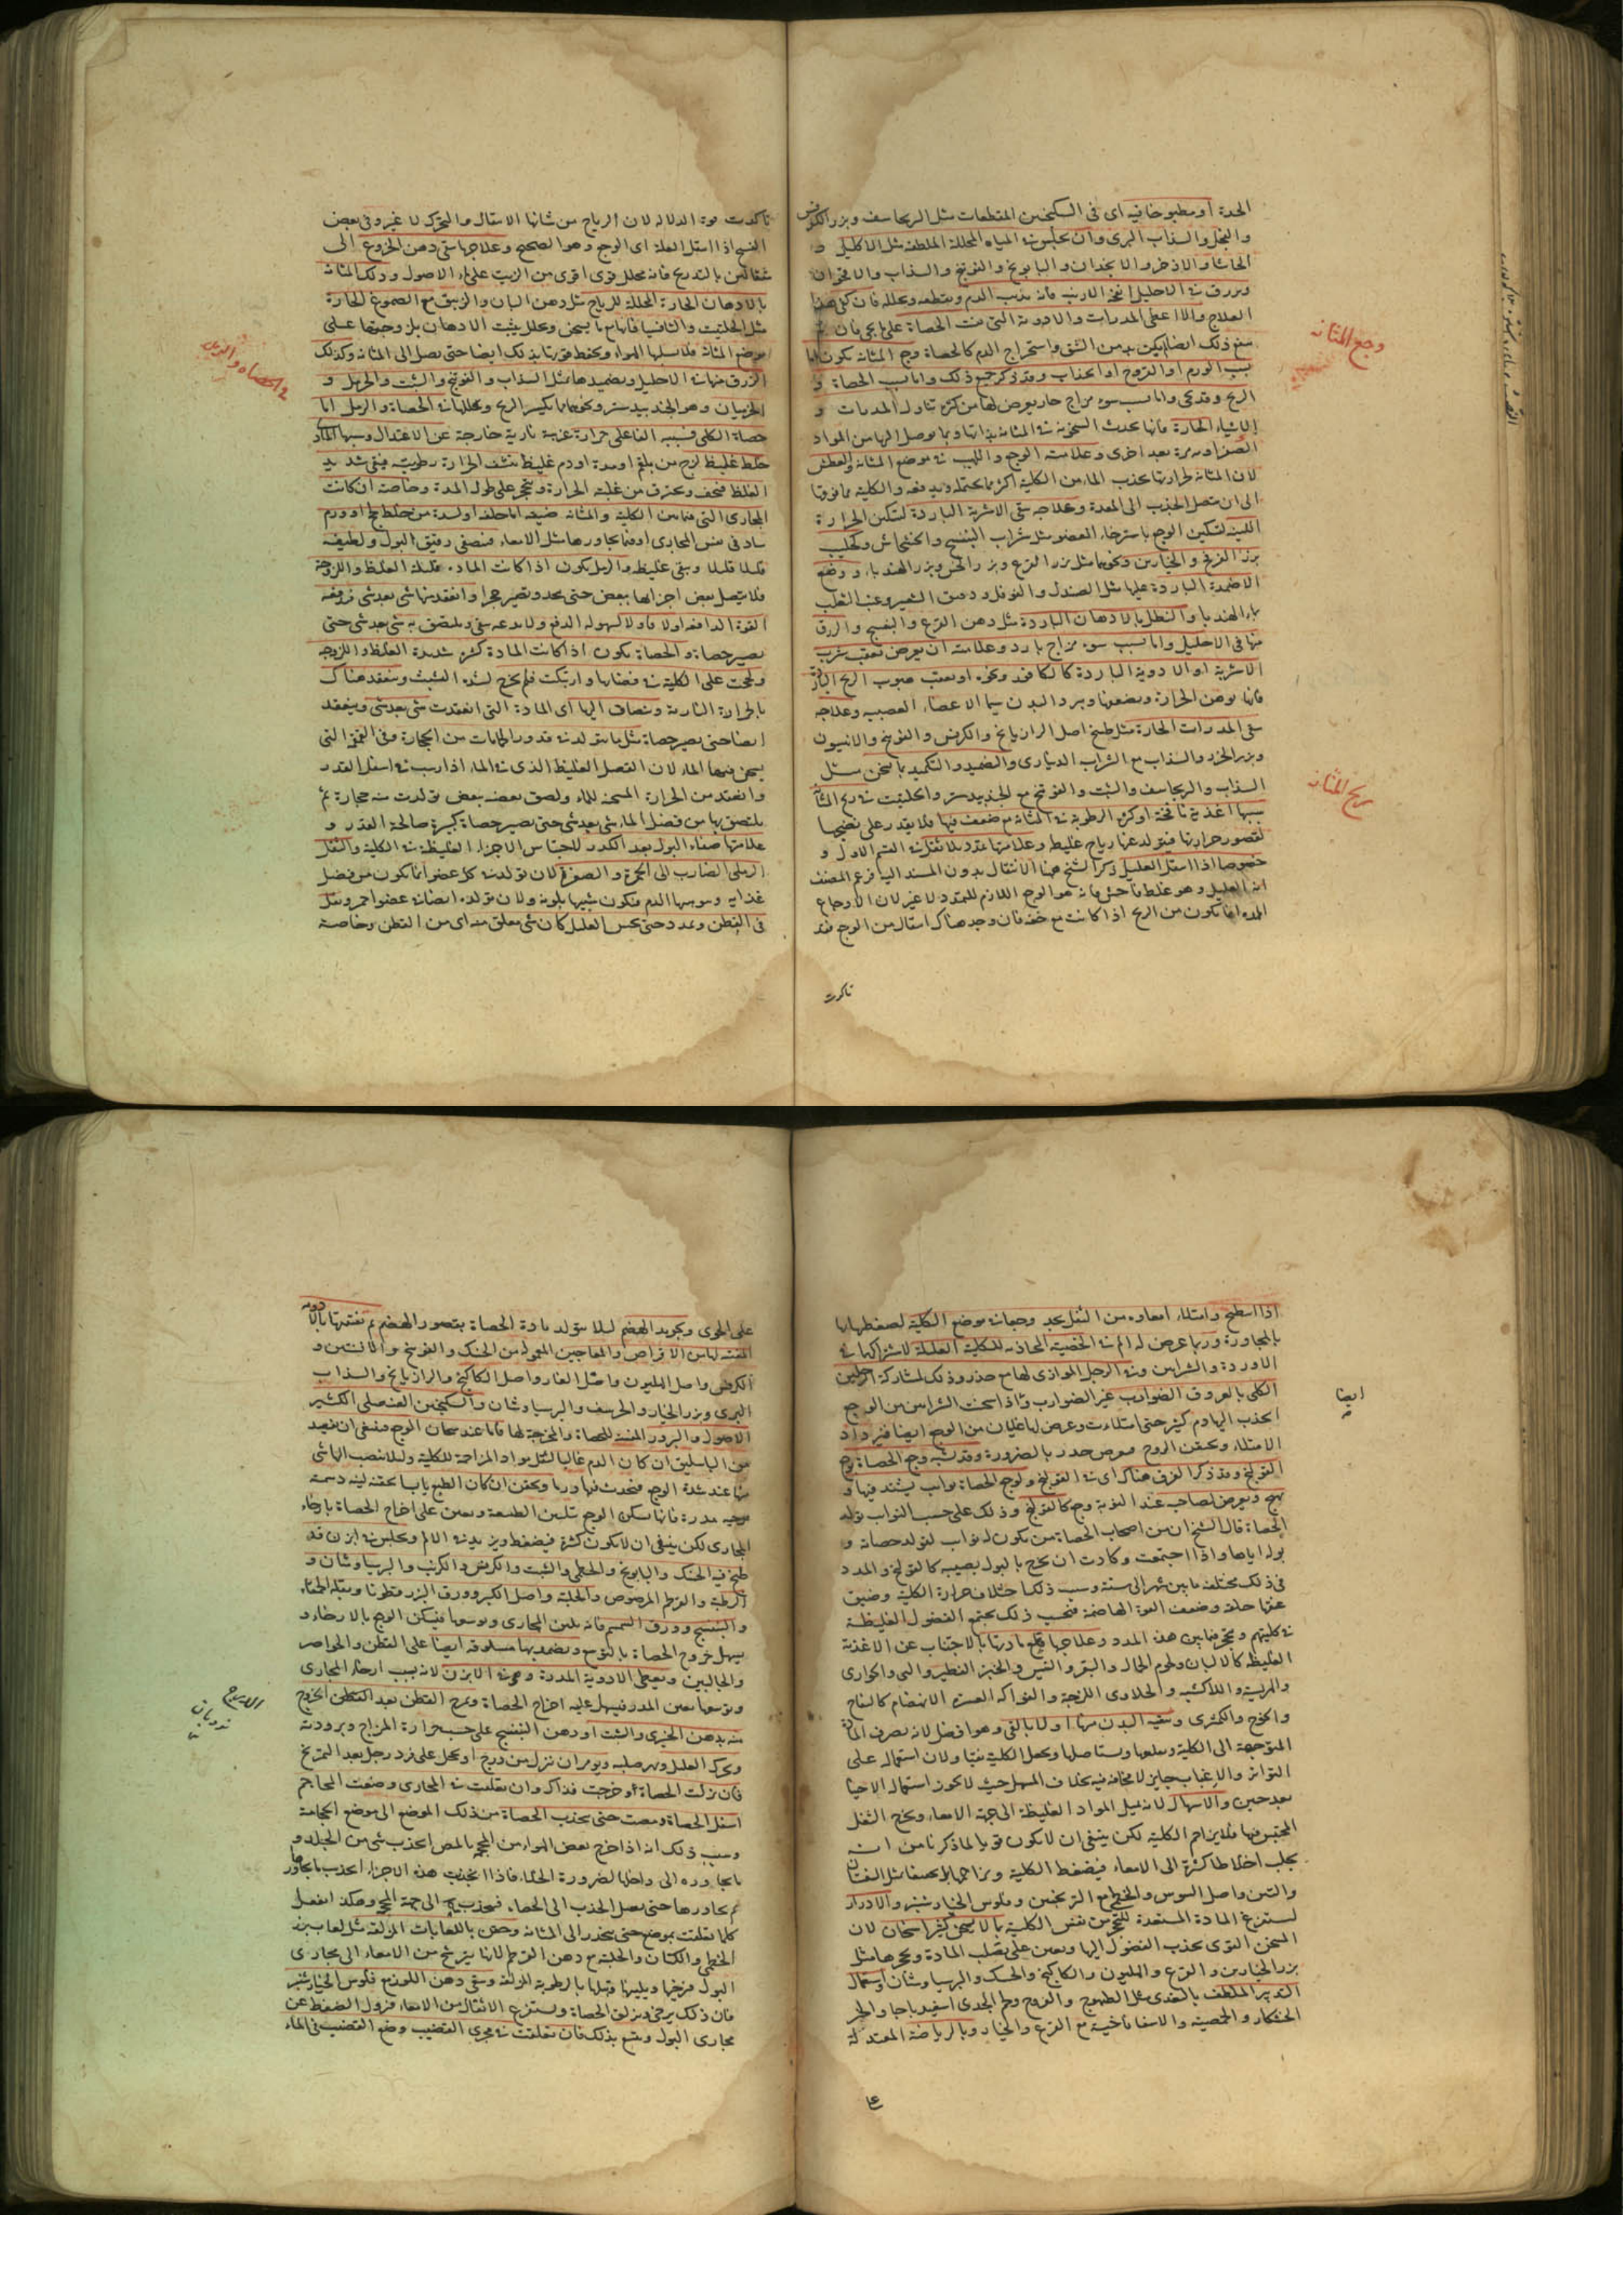 الحدة او مطبوخا فيه اى فى السكنجبين المقطعات مثل البرنجاسف وبزر الكرفس
والفجل والسذاب البرى وان يجلس فى المياه المحللة الملطفة مثل الاكليل و
الحاشا والاذخر والانجدان والبابونج والفوتنج والسذاب والاقحوان
ويزرق فى الاحليل انفحة الارنب فانه يذيب الدم ويقطعه ويحلله فان كفى هذا
العلاج والا اعطى المدرات والادوية التى تفتت الحصاة على ما يجى فان لم
ينفع ذلك ايضا لم يكن بد من الشق واستخراج الدم كالحصاة وجع المثانة يكون اما
بسبب الورم او القروح او الجذاب وقد ذكر جميع ذلك واما بسبب الحصاة و
الريح وقد يجى واما بسبب سوء مزاج حار يعرض لها من كثرة تناول المدرات و
الاشياء الحارة فانها تحدث السخونة فى المثانة بذاتها وبما يوصل اليها من المواد
الصفراوية مرة بعد اخرى وعلامته الوجع واللهيب فى موضع المثانة والعطش
لان المثانة لحرارتها تجذب الماء من الكلية اكثر مما يحتمله ويدفعه والكلية مما فوقها
الى ان يتصل الجذب الى المعدة وعلاجه سقى الاشربة الباردة لتسكين الحرارة
اللينة لتسكين الوجع باسترخاء العضو مثل شراب البنفسج والخشخاش وتحليب
بزر الفرفخ والخيارين ونحوها مثل بزر القرع وبزر الخس وبزر الهندباء ووضع
الاضمدة الباردة عليها مثل الصندل والفوفل ودقيق الشعير وعنب الثعلب
بماء الهندبا والنطل بالادهان الباردة مثل دهن القرع والبنفسج والزرق
منها فى الاحليل واما بسبب سوء مزاج بارد وعلامته ان يعرض بعقب شرب
الاشربة او الادوية الباردة كالكافور ونحوه او بعقب هبوب الريح الباردة
فانها توهن الحرارة وتضعفها وتبرد البدن سيما الاعضاء العصبية وعلاجه
سقى المدرات الحارة مثل طبيخ اصل الرازيانج والكرفس والفوتنج والانيسون
وبزر الجزر والسذاب مع الشراب الديارى والتضميد والتكميد بما يسخن مثل
السذاب والبرنجاسف والشبت والفوتنج مع الجندبيدستر والحلتيت فى ريح المثانة
سببها اغذية نافخة او كثرة الرطوبة فى المثانة مع ضعف فيها فلا يقدر على نضجها
لقصور حرارتها فيتولد عنها رياح غليظ وعلامتها تمدد بلا ثقل فى القسم الاول و
خصوصا اذا انتقل العليل ذكر الشيخ هنا الانتقال بدون المسند اليه فزعم المصنف
انه العليل وهو غلط فاحش فانه هو الوجع اللازم للتمدد لا غير لان الاوجاع
المددة انما يكون من الريح اذا كانت مع خفة فان وجد هناك انتقال من الوجع فقد
تاكدت
وجع المثانه
ريح المثانه
تاكدت قوة الدلالة لان الرياح من شانها الانتقال والتحرك لا غير وفى بعض
النسخ اذا انتقل العلة اى الوجع وهو الصحيح وعلاجها سقى دهن الخروع الى
مثقالين بالتدريج فانه محلل قوى اقوى من الزيت على ماء الاصول ودلك المثانة
بالادهان الحارة المحللة للرياح مثل دهن البان والزنبق مع الصموغ الحارة
مثل الحلتيت والثافسيا فانها مع ما يسخن ويحلل يثبت الادهان بلزوجتها على
موضع المثانة فلا يسلبها الهواء ويحفظ قوتها بذلك ايضا حتى يصل الى المثانة وكذلك
الزرق منها فى الاحليل وتضميدها بمثل السذاب والفوتنج والشبت والحرمل و
الخزميان وهو الجندبيدستر ونحوها مما يكسر الريح ويحللها فى الحصاة والرمل اما
حصاة الكلى فسببه الفاعلى حرارة غريبة نارية خارجة عن الاعتدال وسببها المادى
خلط غليظ لزج من بلغم او مدة او دم غليظ تنشف الحرارة رطوبته فيبقى شديد
الغلظ فيجف ويحترق من غلبة الحرارة ويتحجر على طول المدة وخاصة ان كانت
المجارى التى فيما بين الكلية والمثانة ضيقة اما خلقة او لسدة من خلط لحج او ورم
ساد فى نفس المجارى او فيما يجاورها مثل الامعاء فتصفى رقيق البول ولطيفه
قليلا قليلا ويبقى غليظه والرمل يكون اذا كانت المادة قليلة الغلظ واللزوجة
فلا يتصل بعض اجزائها ببعض حتى يتحد ويصير حجرا وانعقد منها شى بعد شى دفعه
القوة الدافعة اولا فاولا لسهولة الدفع ولا يدعه يبقى ويلتصق به شى بعد شى حتى
يصير حصاة والحصاة يكون اذا كانت المادة كثيرة شديدة الغلظ واللزوجة
ولحجت على الكلية فى فضائها وارتبكت فلم يخرج لشدة التشبث وينعقد هناك
بالحرارة النارية وينضاف اليها اى المادة التى انعقدت شى بعد شى وينعقد
ايضا حتى يصير حصاة مثل ما يتولد فى قدور الحمامات من الحجارة وفى القمقمة التى
يسخن فيها الماء لان الفضل الغليظ الذى فى الماء اذا رسب فى اسفل القدر
وانعقد من الحرارة المسخنة للماء ولصق بعضه ببعض تولدت منه حجارة ثم
يلتصق بها من فضل الماء شى بعد شى حتى يصير حصاة كبيرة صالحة القدر و
علامتها صفاء البول بعد الكدر لاحتباس الاجزاء الغليظة فى الكلية والثفل
الرملى الضارب الى الحمرة والصفرة لان تولدت كل عضو انما يكون من فضل
غذايه وسوسها الدم فيكون شبيها بلونه ولان تولده ايضا فى عضو احمر وثقل
فى القطن وتمدد حتى يحس العليل كان شى معلق منه اى من القطن وخاصة
فى الحصاه والرمل
اذا انبطح وامتلاء امعاءه من الثفل يجد وجعا فى موضع الكلية لضغطها لها
بالمجاورة وربما عرض له الم فى الخصية المحاذية للكلية العليلة لاشتراكها فى
الاوردة والشرايين وفى الرجل الموازى لها مع خدر وذلك لمشاركة الرجلين
الكلى بالعروق الضوارب غير الضوارب واذا سخنت الشرايين من الوجع
انجذب اليها دم كثير حتى امتلاءت وعرض لها غليان من الوجع ايضا فيزداد
الامتلاء ويحتقن الروح فيعرض خدر بالضرورة وقد يشبه وجع الحصاة وجع
القولنج وقد ذكر الفرق هناك اى فى القولنج ولوجع الحصاة نوايب يشتد فيها و
يهيج ويعرض لصاحبه عند النوبة وجع كالقولنج وذلك على حسب النوايب تولد
الحصاة قال الشيخ ان من اصحاب الحصاة من يكون له نوايب لتولد حصاته و
بوله اياها واذا اجتمعت وكادت ان يخرج بالبول يصيبه كالقولنج والمدد
فى ذلك مختلفة ما بين شهر الى سنة وسبب ذلك اختلاف حرارة الكلية وضيق
عنقها خلقة وضعف القوة الهاضمة فبحسب ذلك يجتمع الفضول الغليظة
فى كليتهم ويتحجر فيما بين هذه المدد وعلاجها قطع مادتها بالاجتناب عن الاغذية
الغليظة كالالبان ولحوم الجمال والبقر والتيس والخبز الفطير والنى والحوارى
والهريسة واللاكشه والحلاوى اللزجة والفواكه العسرة الانهضام كالتفاح
والخوخ والكمثرى وتنقية البدن منها اولا بالقى وهو افضل لانه يصرف المادة
المتوجهة الى الكلية ويقلعها ويستاصلها ويجعل الكلية نقيا ولان استعماله على
التواتر والاغباب جايز لا مخافة فيه بخلاف المسهل حيث لا يجوز استعماله الا حينا
بعد حين والاسهال لانه يميل المواد الغليظة الى جهة الامعاء ويخرج الثفل
المحتبس فيها فلا يزاحم الكلية لكن ينبغى ان لا يكون قويا لما ذكرنا من انه
يجلب اخلاطا كثيرة الى الامعاء فيضغط الكلية ويزاحمها بل يكون ضعيفا مثل
والتين واصل السوس والخطمى مع الترنجبين وفلوس الخيار شنبر والادرار
ليستفرغ المادة المستعدة للتحجر من نفس الكلية بما لا يسخن كثير اسخان لان
المسخن القوى يجذب الفضول اليها ويعين على تصلب المادة وتحجرها مثل
بزر الخيارين والقرع والهليون والكاكنج والحسك والبرسياوشان واستعمال
التدبير الملطف بالتغذى بمثل الطيهوج والفروج ولحم الجدى اسفيدباجا والخبز
الخشكار والحمصية والاسفاناخية مع القرع والخيار وبالرياضة المعتدلة
على
ايضا
على الخوى وتجويد الهضم ليلا يتولد مادة الحصاة بقصور الهضم ثم تفتيتها بالادوية
المفتتة لها من الاقراص والمعاجين المعمولة من الحسك والفوتنج والافسنتين و
الكرفس واصل الهليون واصل الغار واصل الكاكنج والرازيانج والسذاب
البرى وبزر الخيار والحرشف والبرسياوشان والسكنجبين العنصلى الكثير
الاصول والبزور المفتتة للحصاة والمخرجة لها فاما عند هيجان الوجع فينبغى ان يفصد
من الباسليق ان كان الدم غالبا لتقل مواد المزاحمة للكلية وليلا ينصب اليها شى
منها عند شدة الوجع فيحدث فيها ورما ويحقن ان كان الطبع يابسا بحقنة لينة دسمة
مرخية مدرة فانها يسكن الوجع بتليين الطبيعة ويعين على اخراج الحصاة بارخاء
المجارى لكن ينبغى ان لا يكون كثيرة فيضغط ويزيد فى الالم ويجلس فى ابزن قد
طبخ فيه الحسك والبابونج والخطمى والشبت والكرفس والكرنب والبرسياوشان و
الرطبة والقرطم المرضوض والحلبة واصل الكبر وورق البزر قطونا وبقلة الحمقاء
والبنفسج وورق السمسم فانه يلين المجارى ويوسعها فيسكن الوجع بالارخاء و
يسهل خروج الحصاة بالتوسيع ويضمد بها مسلوقة ايضا على القطن والخواصر
والحالبين ويعطى الادوية المدرة وهو فى الابزن لانه بسبب ارخاء المجارى
وتوسعها يعين المدر فيسهل عليه اخراج الحصاة ويمرخ القطن بعد الخروج
منه بدهن الخيرى والشبت او دهن البنفسج على حسب حرارة المزاج وبرودته
ويحرك العليل ويهز صلبه ويومر ان ينزل من درج او يحجل على فرد رجل بعد التمريخ
فان نزلت الحصاة او خرجت فذاك وان تعلقت فى المجارى وضعت المحاجم
اسفل الحصاة ومصت حتى يجذب الحصاة من ذلك الموضع الى موضع الحجامة
وسبب ذلك انه اذا خرج بعض الهواء من المحجمة بالمص انجذب شى من الجلد و
ما يجاوره الى داخلها لضرورة الخلاء فاذا انجذبت هذه الاجزاء انجذب ما يجاورها
ثم يجاورها حتى يصل الجذب الى الحصاة فينجذب هى الى جهة المحجمة وهكذا يفعل
كلما تعلقت بموضع حتى ينحدر الى المثانة وحقن باللعابات المزلقة مثل لعاب بزر
الخطمى والكتان والحلبة مع دهن القرطم لانها يترشح من الامعاء الى مجارى
البول فيرخيها ويلينها ويبلها بالرطوبة المزلقة وسقى دهن اللوز مع فلوس الخيار شنبر
فان ذلك يرخى ويزلق الحصاة ويستفرغ الاثقال من الامعاء فيزول الضغط عن
مجارى البول ويتسع بذلك فان تعلقت فى مجرى القضيب وضع القضيب فى الماء